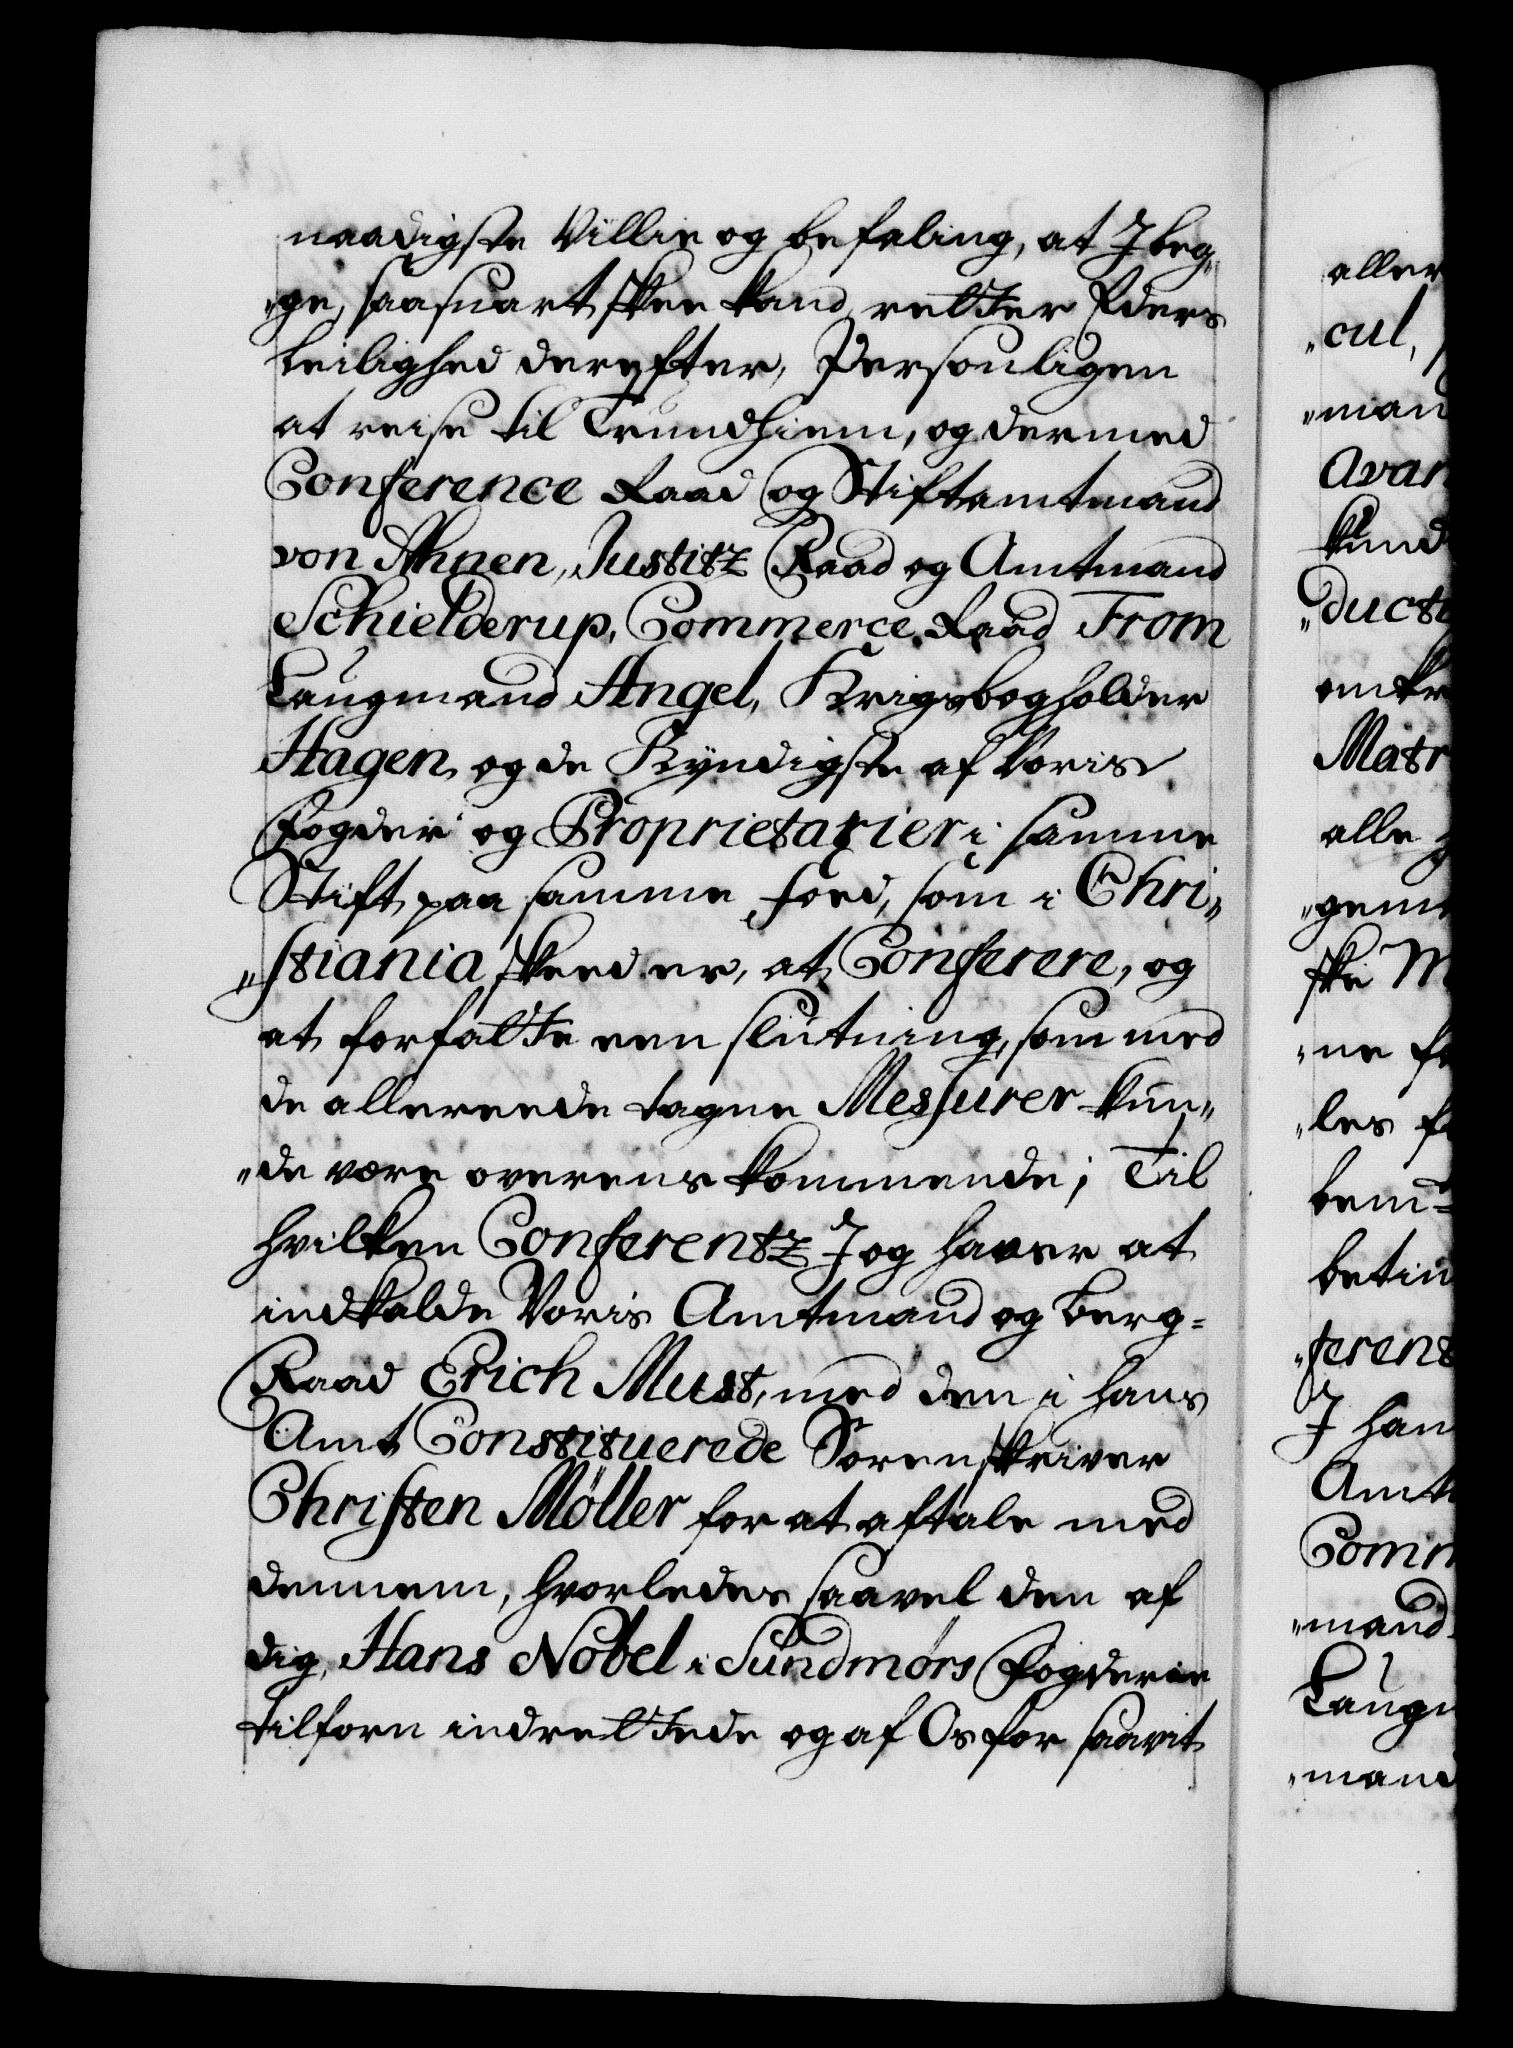 naadigste Villie og befaling, at I beg„
„ge, saasnart skee kand, retter Eders
leilighed derefter, Personligen
at reise til Trundhiem, og der med
Conference Raad og Stiftamtmand
von Ahnen, Justitz Raad og Amtmand
Schielderup, Commerce Raad From
Laugmand Angel, Krigsbogholder
Hagen, og de Kyndigste af Voris
Fogder og Proprietarier i samme
Stift paa samme foed, som i Chri„
„stiania skeed er, at Conferere, og
at forfatte een slutning, som med
de allereede tagne Messurer kun„
„de være overens kommende; Til
hvilken Conferentz I og haver at
indkalde Voris Amtmand og Berg=
Raad Erich Must, med den i hans
Amt Constituerede Sorenskriver
Christen Möller for at aftale med
dennem, hvorledes saavel den af
dig, Hans Nobel i Sundmørs Fogderie
tilforn indrettede og af Os for saavit
aller
„cul,
„man
Avan
kund
„ducti
omkr
Matr
alle
„geme
ske M
„ne fo
„les fo
bem=
betin
„ferent
I hav
Amt
Comm
„mand
Laugm
„mand